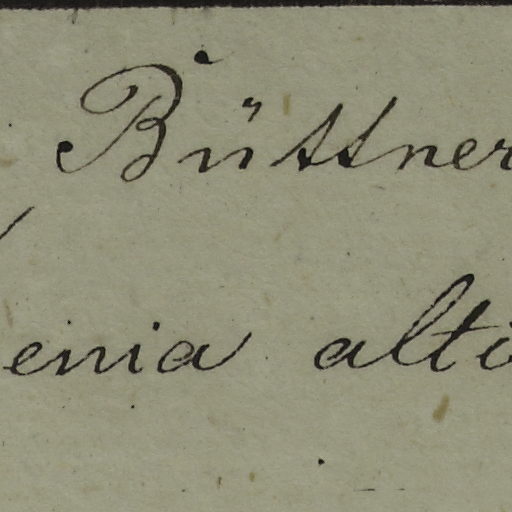 Büttner
enia alti